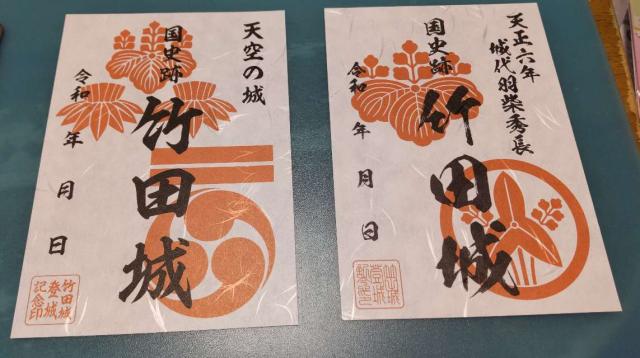 天空の城
国史跡
竹田城
令和 年 月 日
竹田城
登城
記念印
天正六年
城代羽柴秀長
国史跡
竹田城
令和 年 月 日